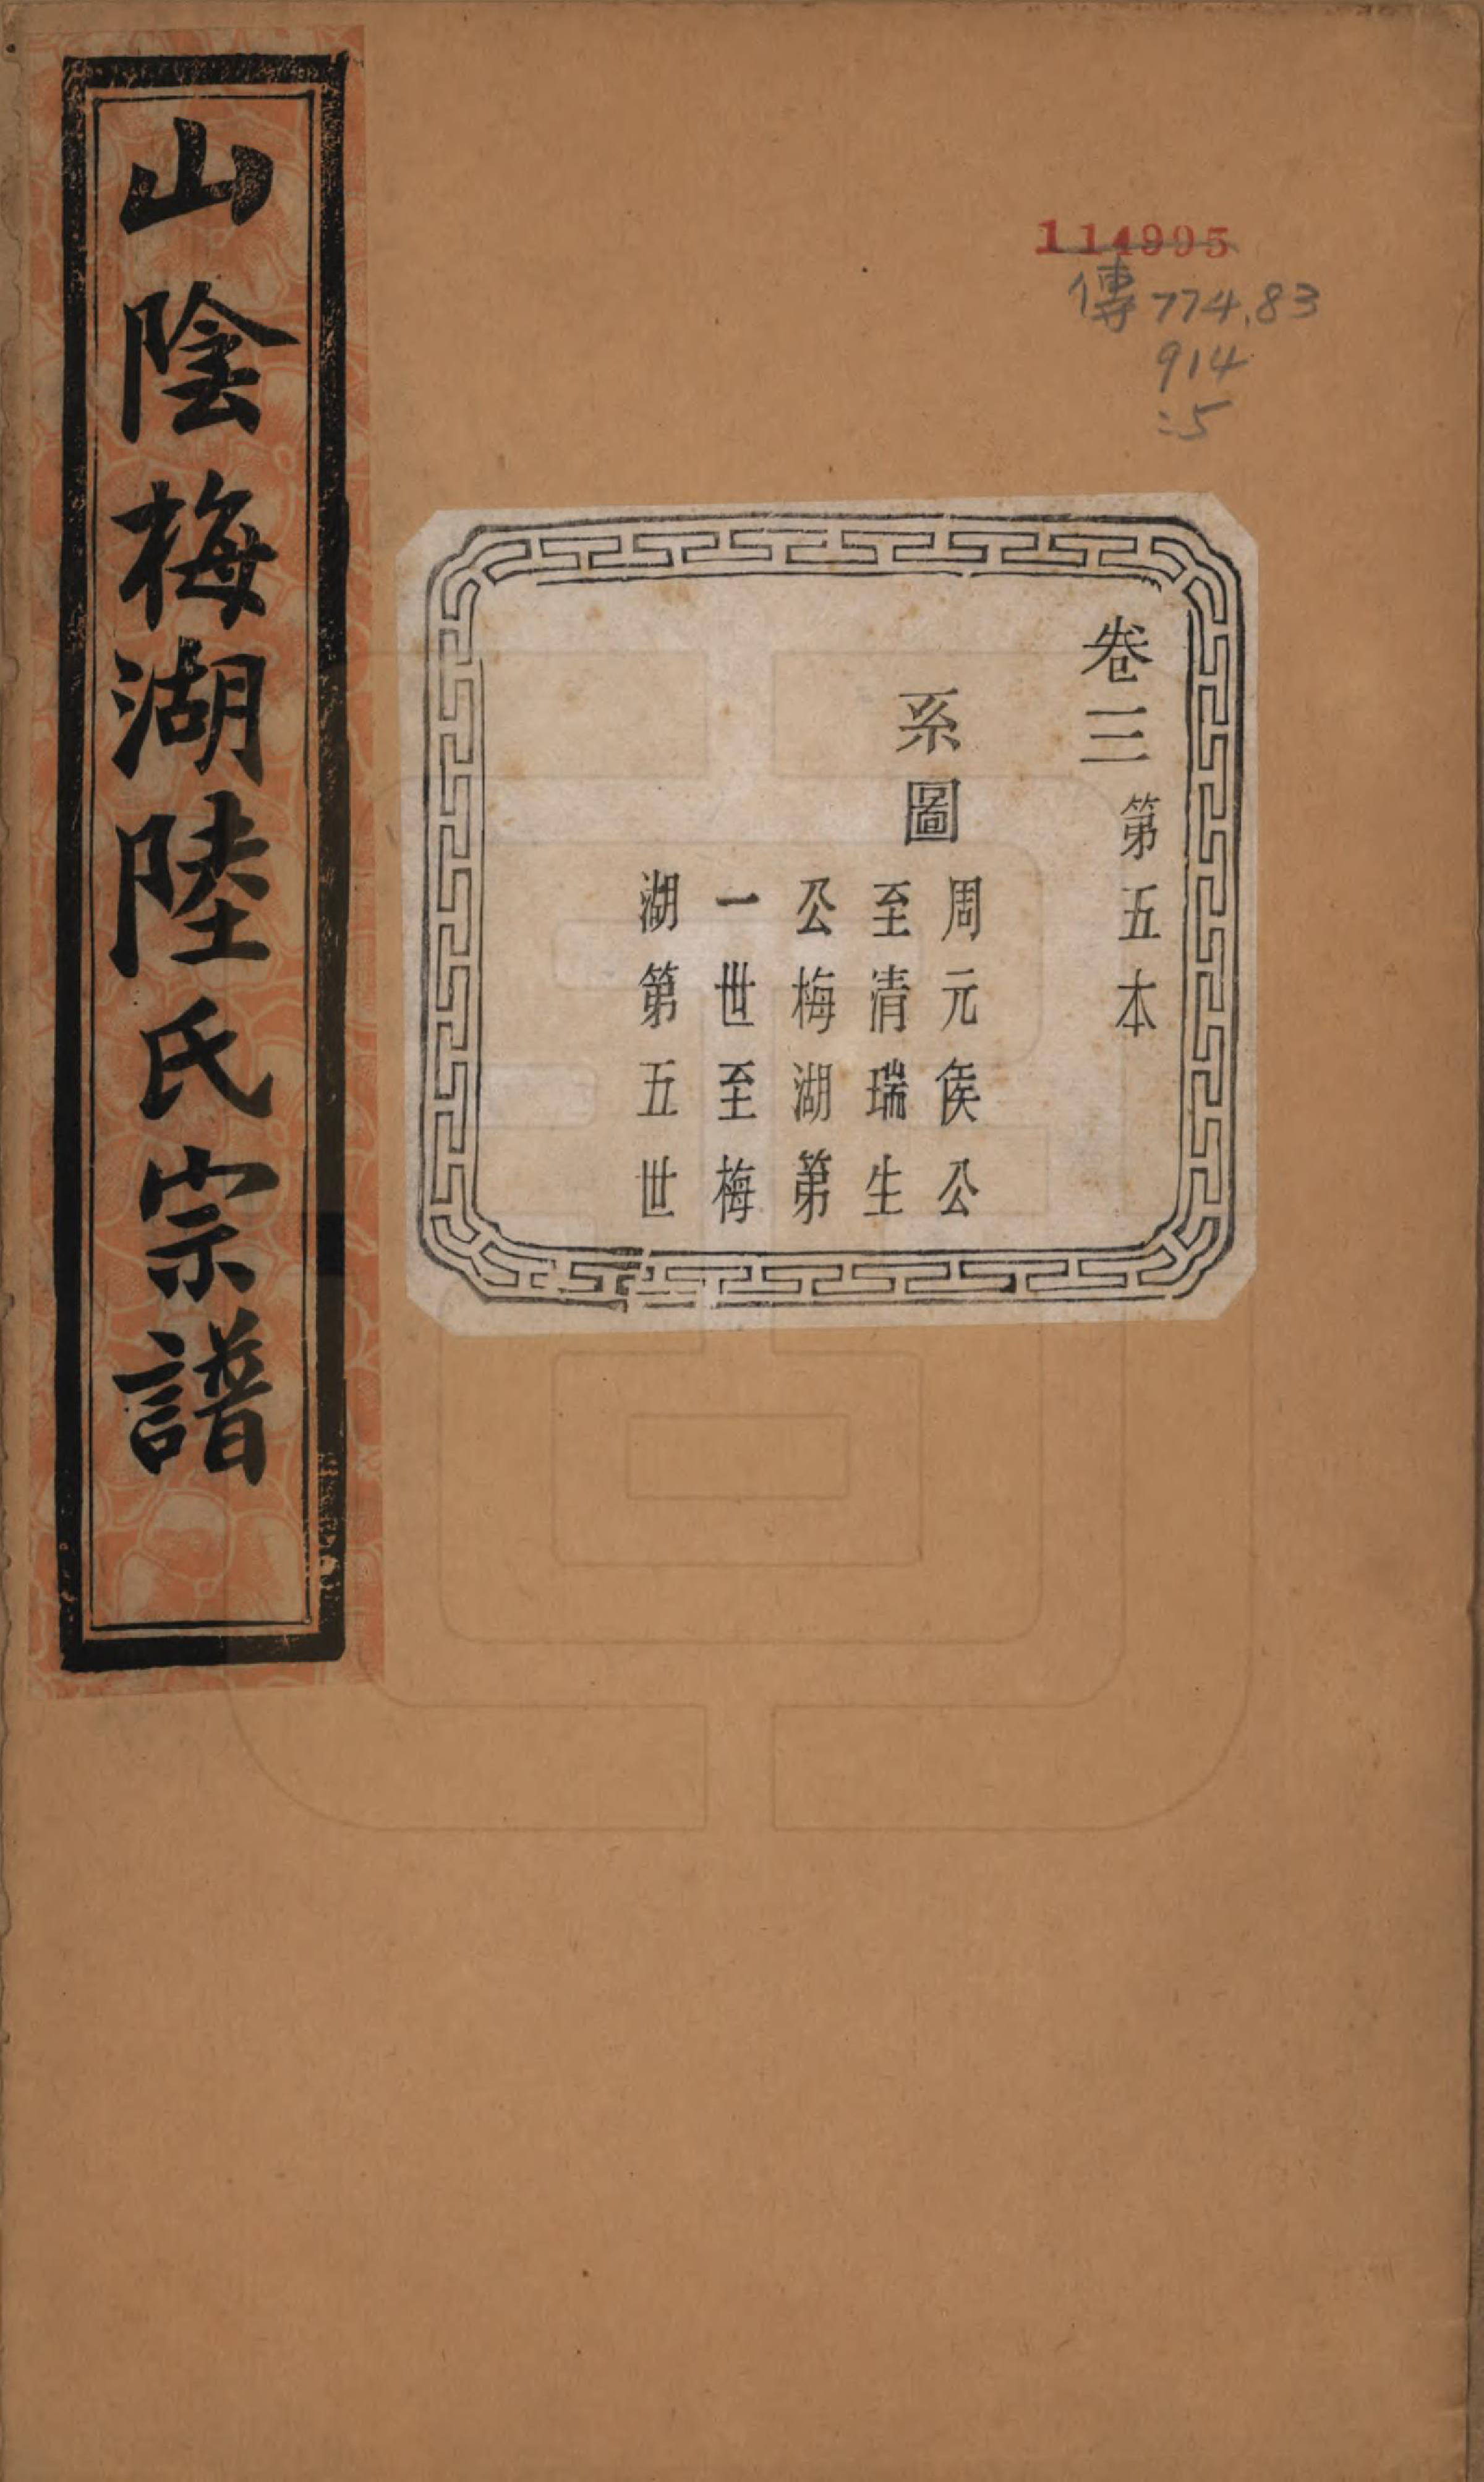 山陰梅湖陸氏宗譜
114995
傳774.83
914
:5
卷三第五本
系圖
周元侯公
至清瑞生
公梅湖第
一世至梅
湖第五世